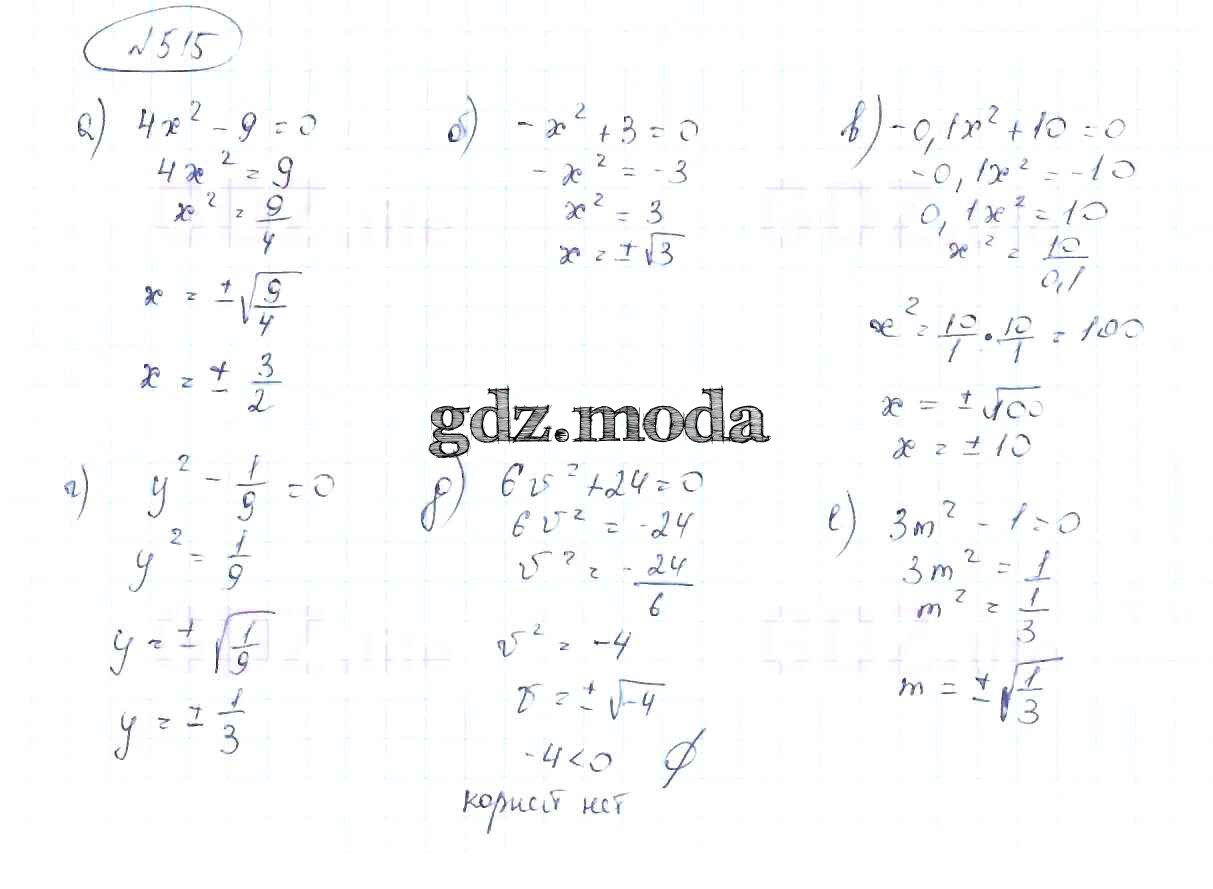 №515
а) 4x² - 9 = 0
4x² = 9
x² = 9/4
x = ±√(9/4)
x = ± 3/2
б) -x² + 3 = 0
-x² = -3
x² = 3
x = ±√3
в) -0,1x² + 10 = 0
-0,1x² = -10
0,1x² = 10
x² = 10/0,1
x² = 10/1 · 10/1 = 100
x = ±√100
x = ±10
gdz.moda
г) y² - 1/9 = 0
y² = 1/9
y = ±√(1/9)
y = ± 1/3
д) 6v² + 24 = 0
6v² = -24
v² = -24/6
v² = -4
v = ±√-4
-4 < 0 ∅
корней нет
е) 3m² - 1 = 0
3m² = 1
m² = 1/3
m = ±√(1/3)